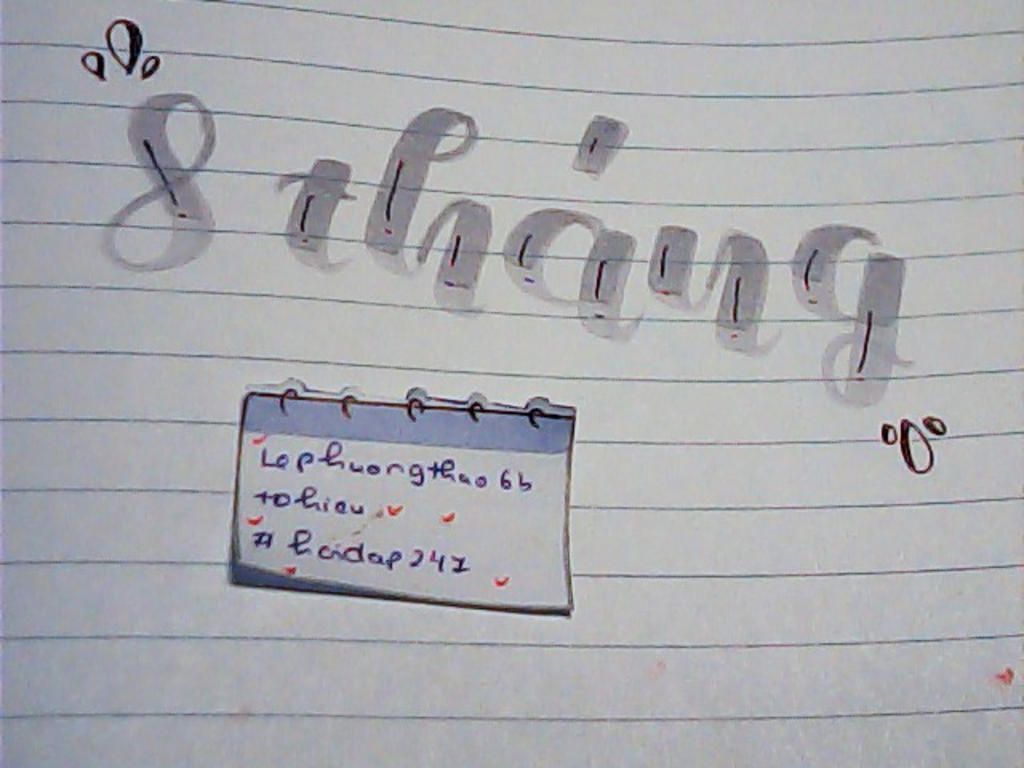 8 tháng
Lephuongthao6b
tohieu
# hoidap247